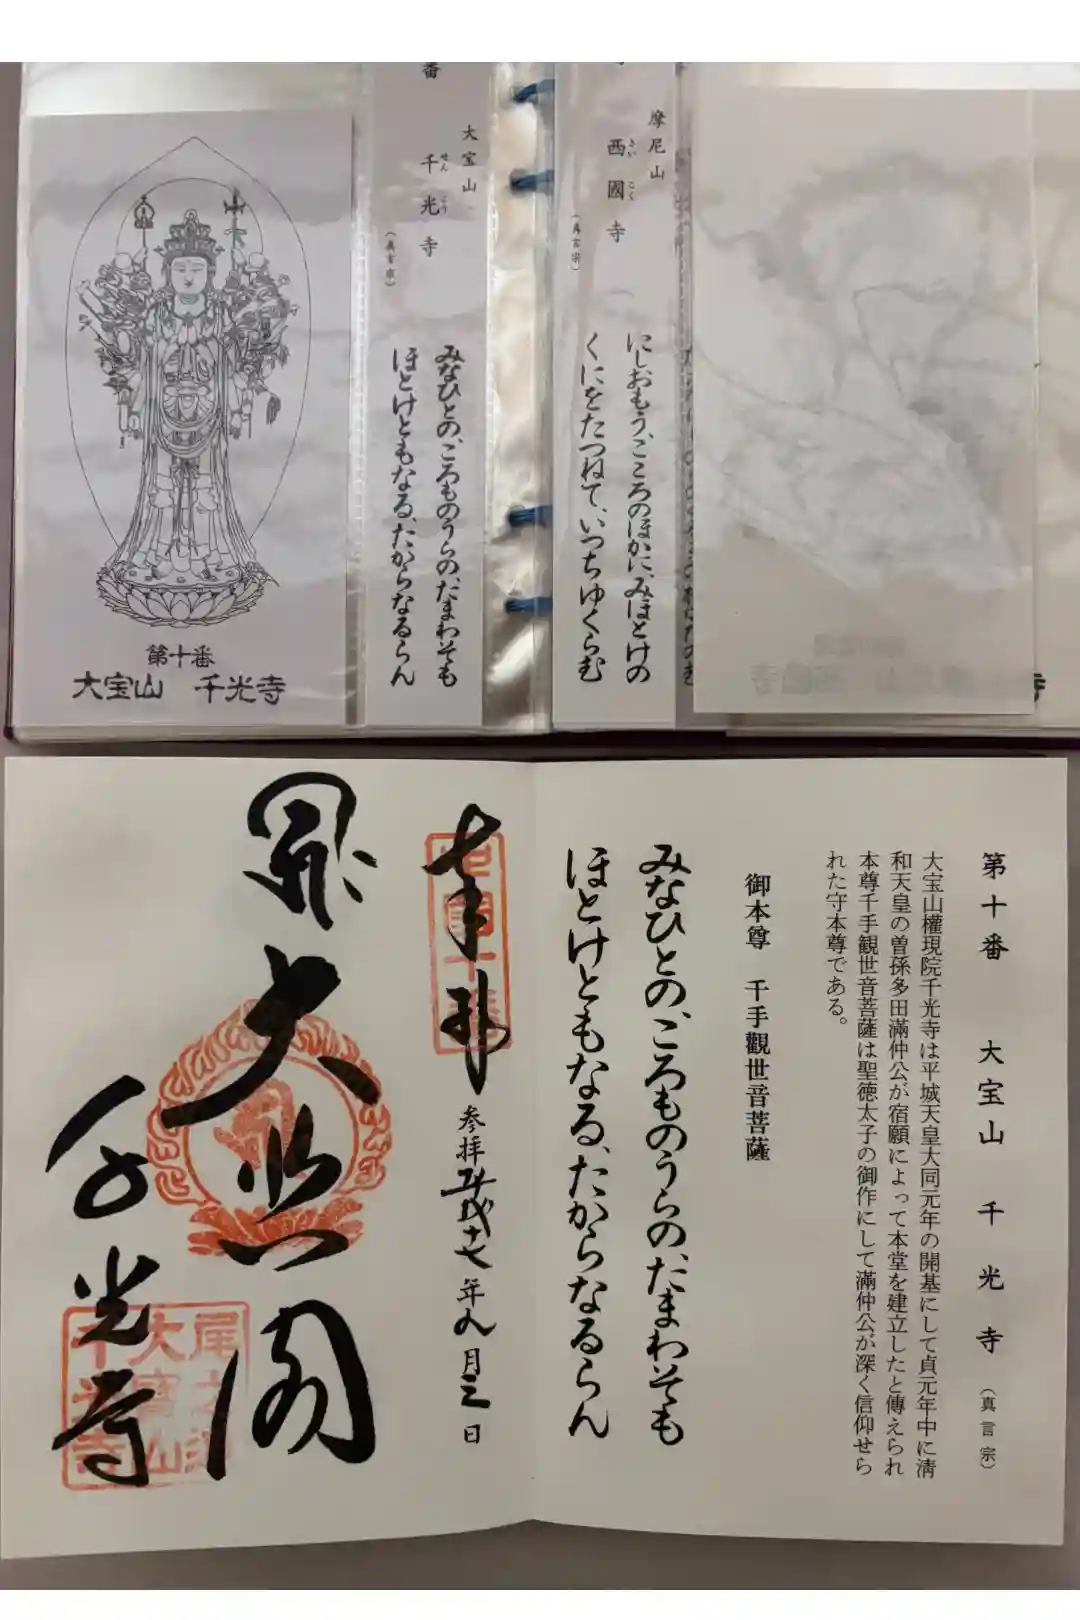 番
大宝山
千光寺
せん こう
(真言宗)
みなひとの、ころものうらの、たまわそも
ほとけともなる、たからなるらん
第十番
大宝山 千光寺
摩尼山
西國寺
さい こく
(真言宗)
にしおもう、こころのほかに、みほとけの
くにをたつねて、いつちゆくらむ
第十番 大宝山 千光寺 (真言宗)
大宝山權現院千光寺は平城天皇大同元年の開基にして貞元年中に淸
和天皇の曽孫多田滿仲公が宿願によって本堂を建立したと傳えられ
本尊千手観世音菩薩は聖徳太子の御作にして滿仲公が深く信仰せら
れた守本尊である。
御本尊 千手觀世音菩薩
みなひとの、ころものうらの、たまわそも
ほとけともなる、たからなるらん
奉拝
参拝平成十七年九月三日
大悲閣
千光寺
尾道
大寳山
千光寺